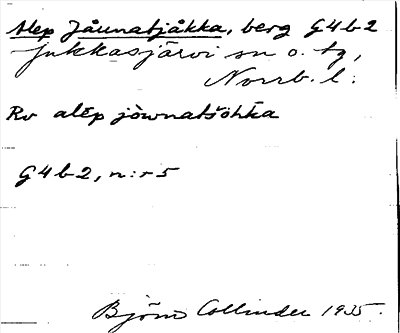 Alep Jåunatjåkka, berg G4b2
Jukkasjärvi sn o. tg,
Norrb. l.
Rv alēp jòwnatšòhka
G4b2, n:r 5
Björn Collinder 1935.